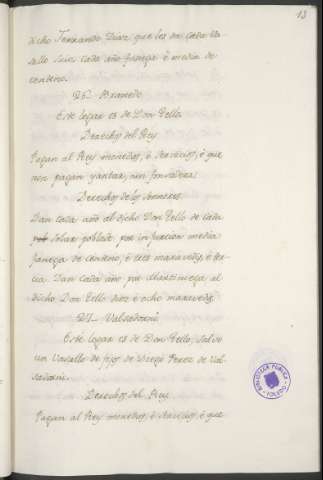 13
dicho Fernando Diaz que les da cada va-
sallo suio cada año fanega è media de
centeno.
Este logar es de Don Tello
Derechos del Rey
Pagan al Rey monedas, è servicios, è que
non pagan yantar, nin fonsadera.
Derechos de los Senores
Dan cada año al dicho Don Tello de cada
solar poblado por infurcion media
fanega de centeno, è tres maravedis, è ter-
cia. Dan cada año por Martiniega al
dicho Don Tello diez è ocho maravedis.
Este logar es de Don Tello, salvo
un Vasallo de fijos de Diego Perez de Val-
Derechos del Rey
Pagan al Rey monedas, è servicios, è que
BIBLIOTECA PUBLICA
TOLEDO